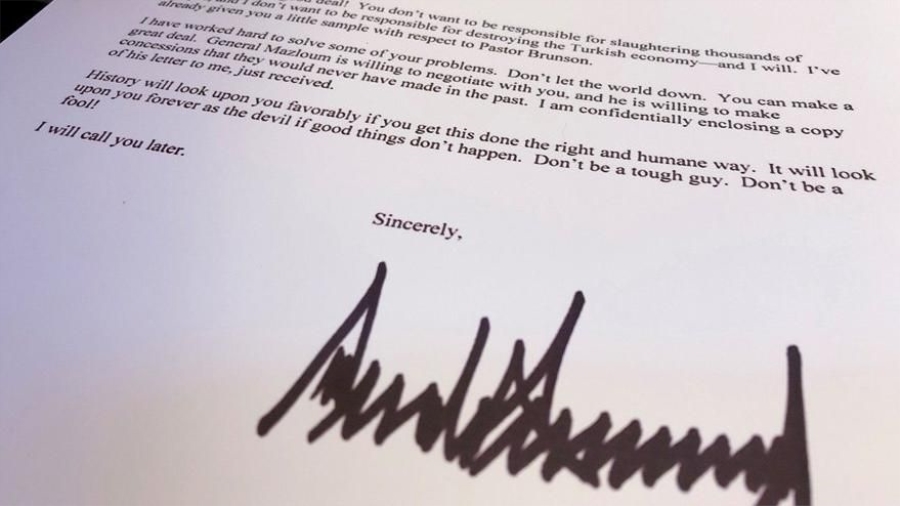 deal! You don't want to be responsible for slaughtering thousands of
and I don't want to be responsible for destroying the Turkish economy—and I will. I've
already given you a little sample with respect to Pastor Brunson.
I have worked hard to solve some of your problems. Don't let the world down. You can make a
great deal. General Mazloum is willing to negotiate with you, and he is willing to make
concessions that they would never have made in the past. I am confidentially enclosing a copy
of his letter to me, just received.
History will look upon you favorably if you get this done the right and humane way. It will look
upon you forever as the devil if good things don't happen. Don't be a tough guy. Don't be a
fool!
I will call you later.
Sincerely,